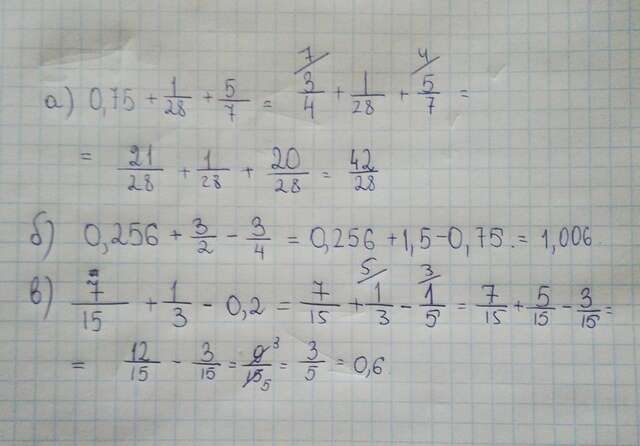 а) 0,75 + 1/28 + 5/7 = 3/4 ⁷ + 1/28 + 5/7 ⁴ =
= 21/28 + 1/28 + 20/28 = 42/28
б) 0,256 + 3/2 - 3/4 = 0,256 + 1,5 - 0,75. = 1,006.
в) 7/15 + 1/3 - 0,2 = 7/15 + 1/3 ⁵ - 1/5 ³ = 7/15 + 5/15 - 3/15 =
= 12/15 - 3/15 = 9/15 ³ ₅ = 3/5 = 0,6.